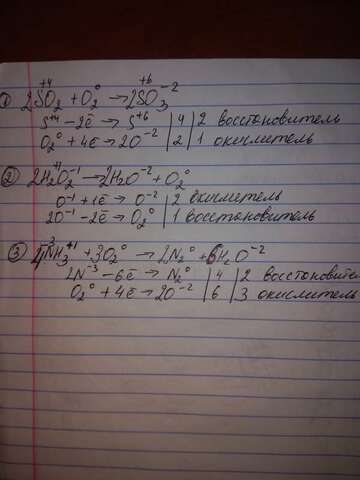 ① 2S⁺⁴O₂ + O₂⁰ → 2S⁺⁶O₃⁻²
S⁺⁴ – 2ē → S⁺⁶ | 4 | 2 восстановитель
O₂⁰ + 4ē → 2O⁻² | 2 | 1 окислитель
② 2H₂⁺¹O₂⁻¹ → 2H₂O⁻² + O₂⁰
O⁻¹ + 1ē → O⁻² | 2 окислитель
2O⁻¹ – 2ē → O₂⁰ | 1 восстановитель
③ 4N⁻³H₃⁺¹ + 3O₂⁰ → 2N₂⁰ + 6H₂O⁻²
2N⁻³ – 6ē → N₂⁰ | 4 | 2 восстановител
O₂⁰ + 4ē → 2O⁻² | 6 | 3 окислитель